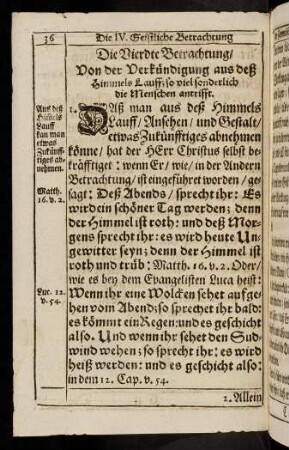 36
Die IV. Geistliche Betrachtung
Die Vierdte Betrachtung/
Von der Verkündigung aus deß
Himmels Lauff: so viel sonderlich
die Menschen antrifft.
Aus deß
Himels
Lauff
kan man
etwas
Zukünff-
tiges ab-
nehmen.
Matth.
16. v. 2.
Luc. 12.
v. 54.
1. Daß man aus deß Himmels
Lauff/ Ansehen/ und Gestalt/
etwas Zukünfftiges abnehmen
könne/ hat der HErr Christus selbst be-
kräfftiget: wenn Er/ wie/ in der Andern
Betrachtung/ ist eingeführet worden/ ge-
sagt: Deß Abends/ sprecht ihr: Es
wird ein schöner Tag werden; denn
der Himmel ist roth: und deß Mor-
gens sprecht ihr: es wird heute Un-
gewitter seyn; denn der Himmel ist
roth und trüb: Matth. 16. v. 2. Oder/
wie es bey dem Evangelisten Luca heist:
Wenn ihr eine Wolcken sehet aufge-
hen vom Abend; so sprechet ihr bald:
es kömmt ein Regen: und es geschicht
also. Und wenn ihr sehet den Sud-
wind wehen; so sprecht ihr: es wird
heiß werden: und es geschicht also:
in dem 12. Cap. v. 54.
2. Allein